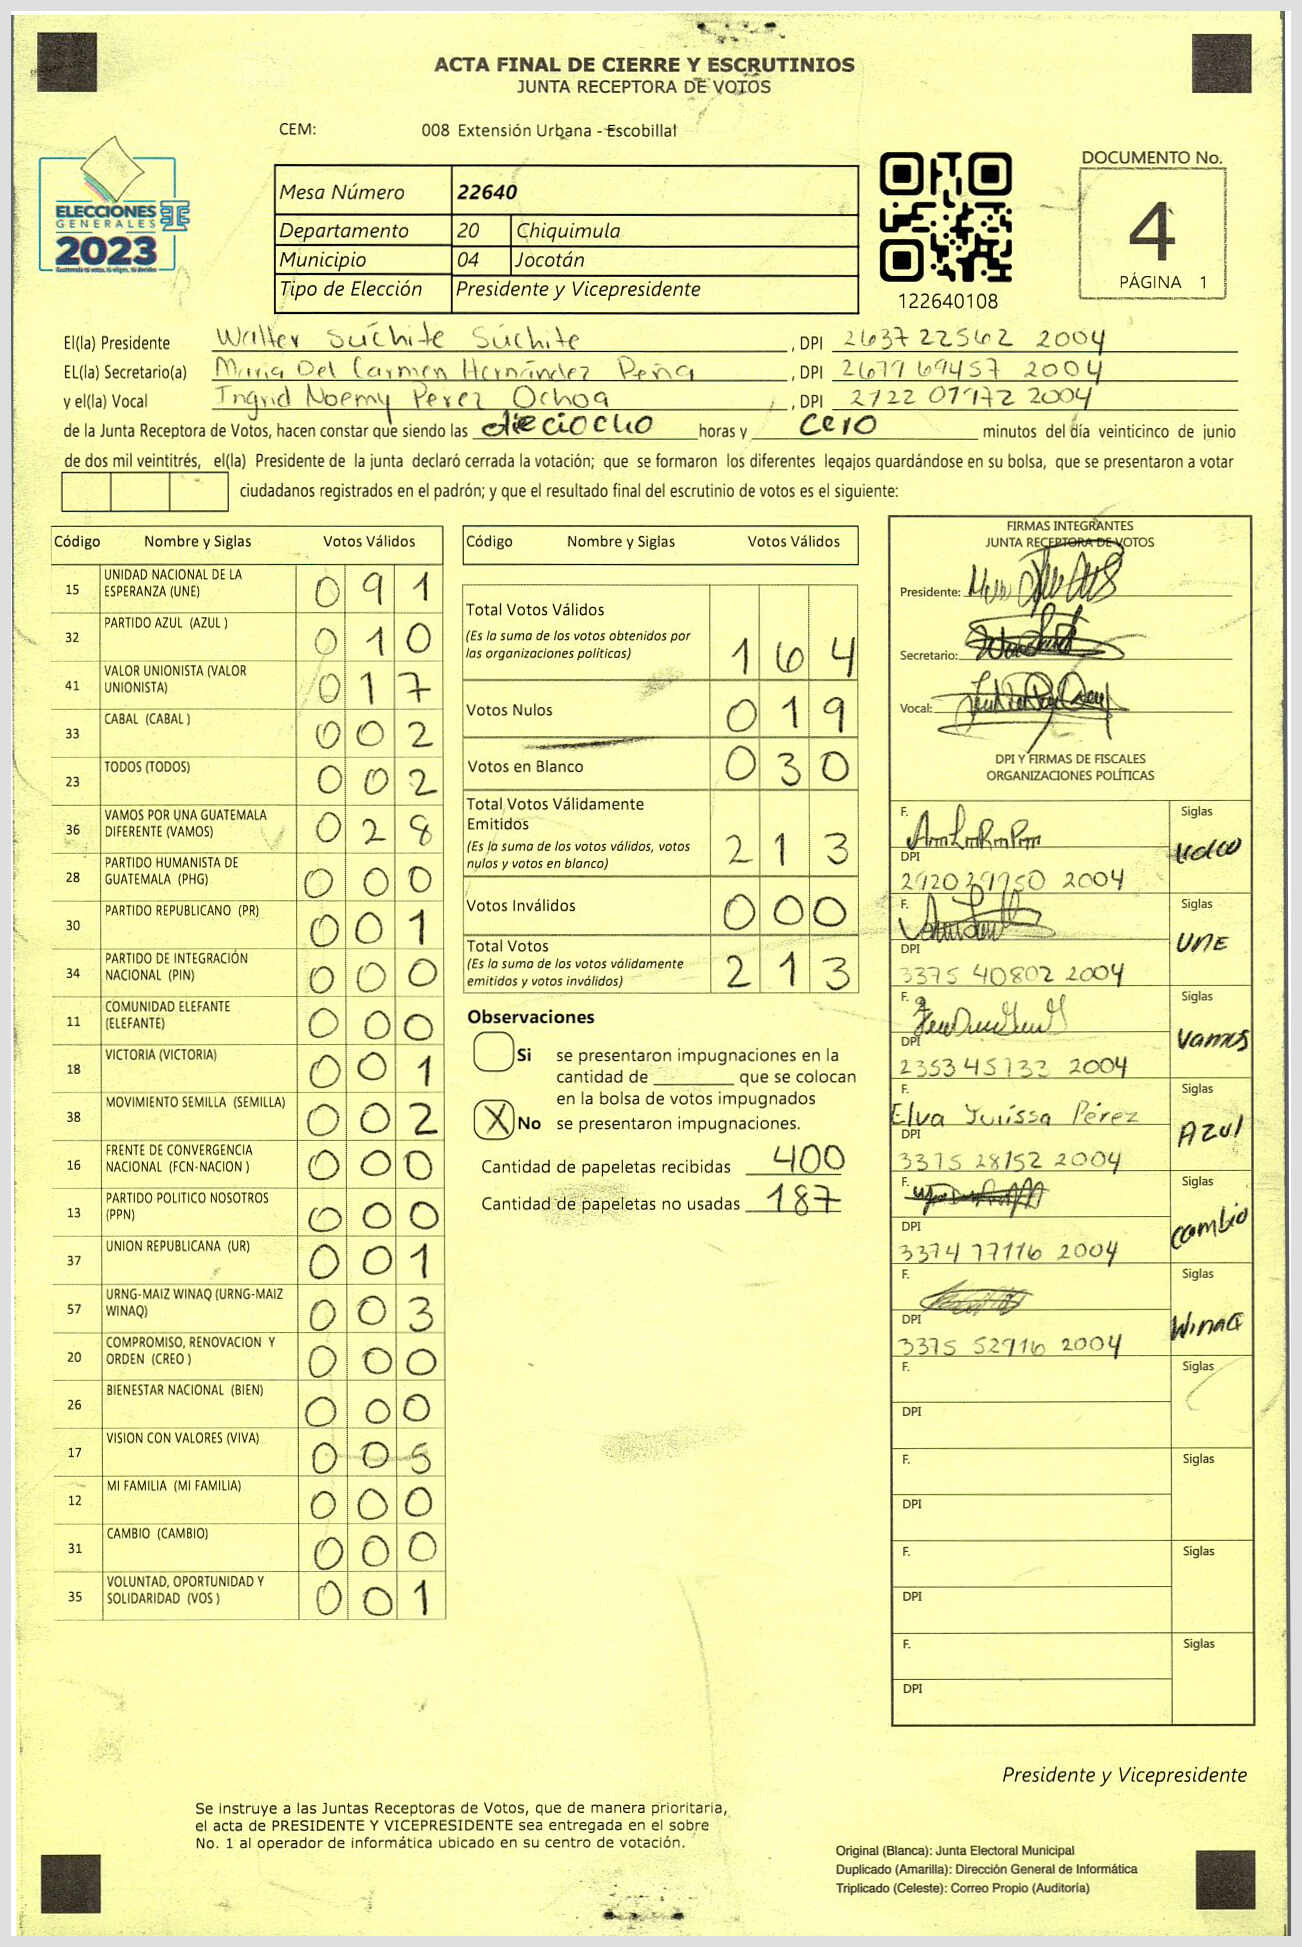 ACTA FINAL DE CIERRE Y ESCRUTINIOS
JUNTA RECEPTORA DE VOTOS
CEM: 008 Extensión Urbana - Escobillal
ELECCIONES
GENERALES
2023
Guatemala tú votas, tú eliges, tú decides
Mesa Número 22640
Departamento 20 Chiquimula
Municipio 04 Jocotán
Tipo de Elección Presidente y Vicepresidente
122640108
DOCUMENTO No.
4
PÁGINA 1
El(la) Presidente Walter Súchite Súchite, DPI 2637 22562 2004
EL(la) Secretario(a) Maria Del Carmen Hernández Peña, DPI 2679 69457 2004
y el(la) Vocal Ingrid Noemy Perez Ochoa, DPI 2722 07972 2004
de la Junta Receptora de Votos, hacen constar que siendo las dieciocho horas y cero minutos del día veinticinco de junio
de dos mil veintitrés, el(la) Presidente de la junta declaró cerrada la votación; que se formaron los diferentes legajos guardándose en su bolsa, que se presentaron a votar
ciudadanos registrados en el padrón; y que el resultado final del escrutinio de votos es el siguiente:
Código Nombre y Siglas Votos Válidos
15 UNIDAD NACIONAL DE LA ESPERANZA (UNE) 0 9 1
32 PARTIDO AZUL (AZUL ) 0 1 0
41 VALOR UNIONISTA (VALOR UNIONISTA) 0 1 7
33 CABAL (CABAL ) 0 0 2
23 TODOS (TODOS) 0 0 2
36 VAMOS POR UNA GUATEMALA DIFERENTE (VAMOS) 0 2 8
28 PARTIDO HUMANISTA DE GUATEMALA (PHG) 0 0 0
30 PARTIDO REPUBLICANO (PR) 0 0 1
34 PARTIDO DE INTEGRACIÓN NACIONAL (PIN) 0 0 0
11 COMUNIDAD ELEFANTE (ELEFANTE) 0 0 0
18 VICTORIA (VICTORIA) 0 0 1
38 MOVIMIENTO SEMILLA (SEMILLA) 0 0 2
16 FRENTE DE CONVERGENCIA NACIONAL (FCN-NACION ) 0 0 0
13 PARTIDO POLITICO NOSOTROS (PPN) 0 0 0
37 UNION REPUBLICANA (UR) 0 0 1
57 URNG-MAIZ WINAQ (URNG-MAIZ WINAQ) 0 0 3
20 COMPROMISO, RENOVACION Y ORDEN (CREO ) 0 0 0
26 BIENESTAR NACIONAL (BIEN) 0 0 0
17 VISION CON VALORES (VIVA) 0 0 5
12 MI FAMILIA (MI FAMILIA) 0 0 0
31 CAMBIO (CAMBIO) 0 0 0
35 VOLUNTAD, OPORTUNIDAD Y SOLIDARIDAD (VOS ) 0 0 1
Código Nombre y Siglas Votos Válidos
Total Votos Válidos
(Es la suma de los votos obtenidos por
las organizaciones políticas) 1 6 4
Votos Nulos 0 1 9
Votos en Blanco 0 3 0
Total Votos Válidamente
Emitidos
(Es la suma de los votos válidos, votos
nulos y votos en blanco) 2 1 3
Votos Inválidos 0 0 0
Total Votos
(Es la suma de los votos válidamente
emitidos y votos inválidos) 2 1 3
Observaciones
Si se presentaron impugnaciones en la
cantidad de ________ que se colocan
en la bolsa de votos impugnados
X No se presentaron impugnaciones.
Cantidad de papeletas recibidas 400
Cantidad de papeletas no usadas 187
FIRMAS INTEGRANTES
JUNTA RECEPTORA DE VOTOS
Presidente:
Secretario:
Vocal:
DPI Y FIRMAS DE FISCALES
ORGANIZACIONES POLÍTICAS
F. Siglas
DPI
F. Siglas UNE
DPI 3375 40802 2004
F. Siglas Vamos
DPI 2353 45733 2004
F. Elva Yulissa Pérez Siglas Azul
DPI 3375 28152 2004
F. Siglas cambio
DPI 3374 77116 2004
F. Siglas Winaq
DPI 3375 52916 2004
F. Siglas
DPI
F. Siglas
DPI
F. Siglas
DPI
F. Siglas
DPI
Presidente y Vicepresidente
Se instruye a las Juntas Receptoras de Votos, que de manera prioritaria,
el acta de PRESIDENTE Y VICEPRESIDENTE sea entregada en el sobre
No. 1 al operador de informática ubicado en su centro de votación.
Original (Blanca): Junta Electoral Municipal
Duplicado (Amarilla): Dirección General de Informática
Triplicado (Celeste): Correo Propio (Auditoría)